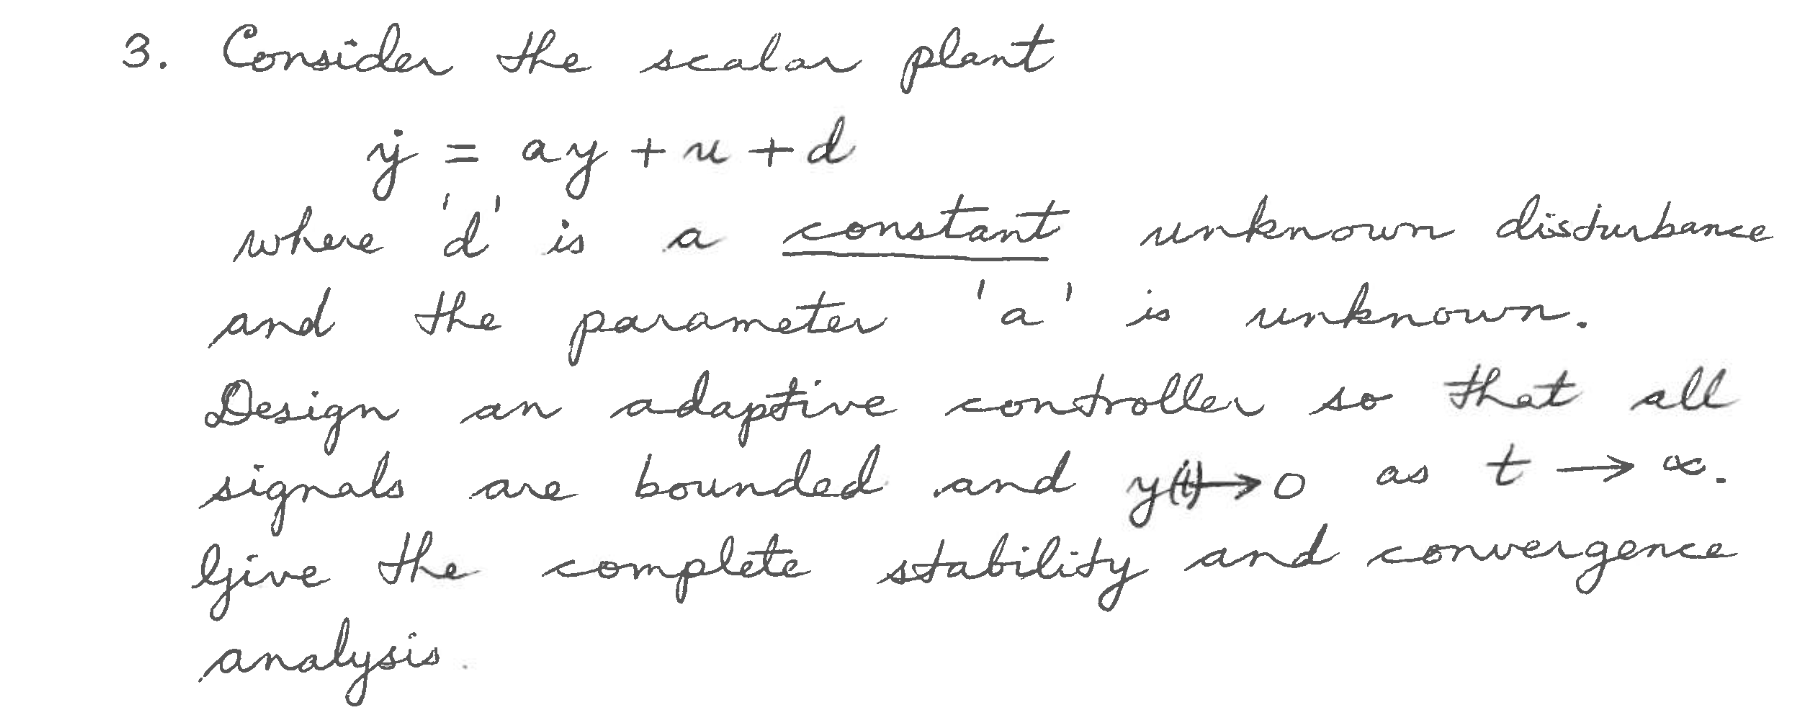 3. Consider the scalar plant
ẏ = ay + u + d
where 'd' is a constant unknown disturbance
and the parameter 'a' is unknown.
Design an adaptive controller so that all
signals are bounded and y(t)→0 as t → ∞.
Give the complete stability and convergence
analysis.